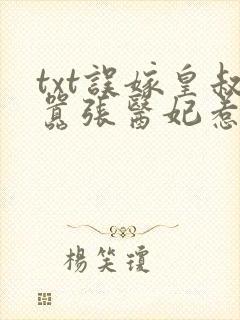 txt誤嫁皇叔
囂張醫妃惹
楊笑瓊